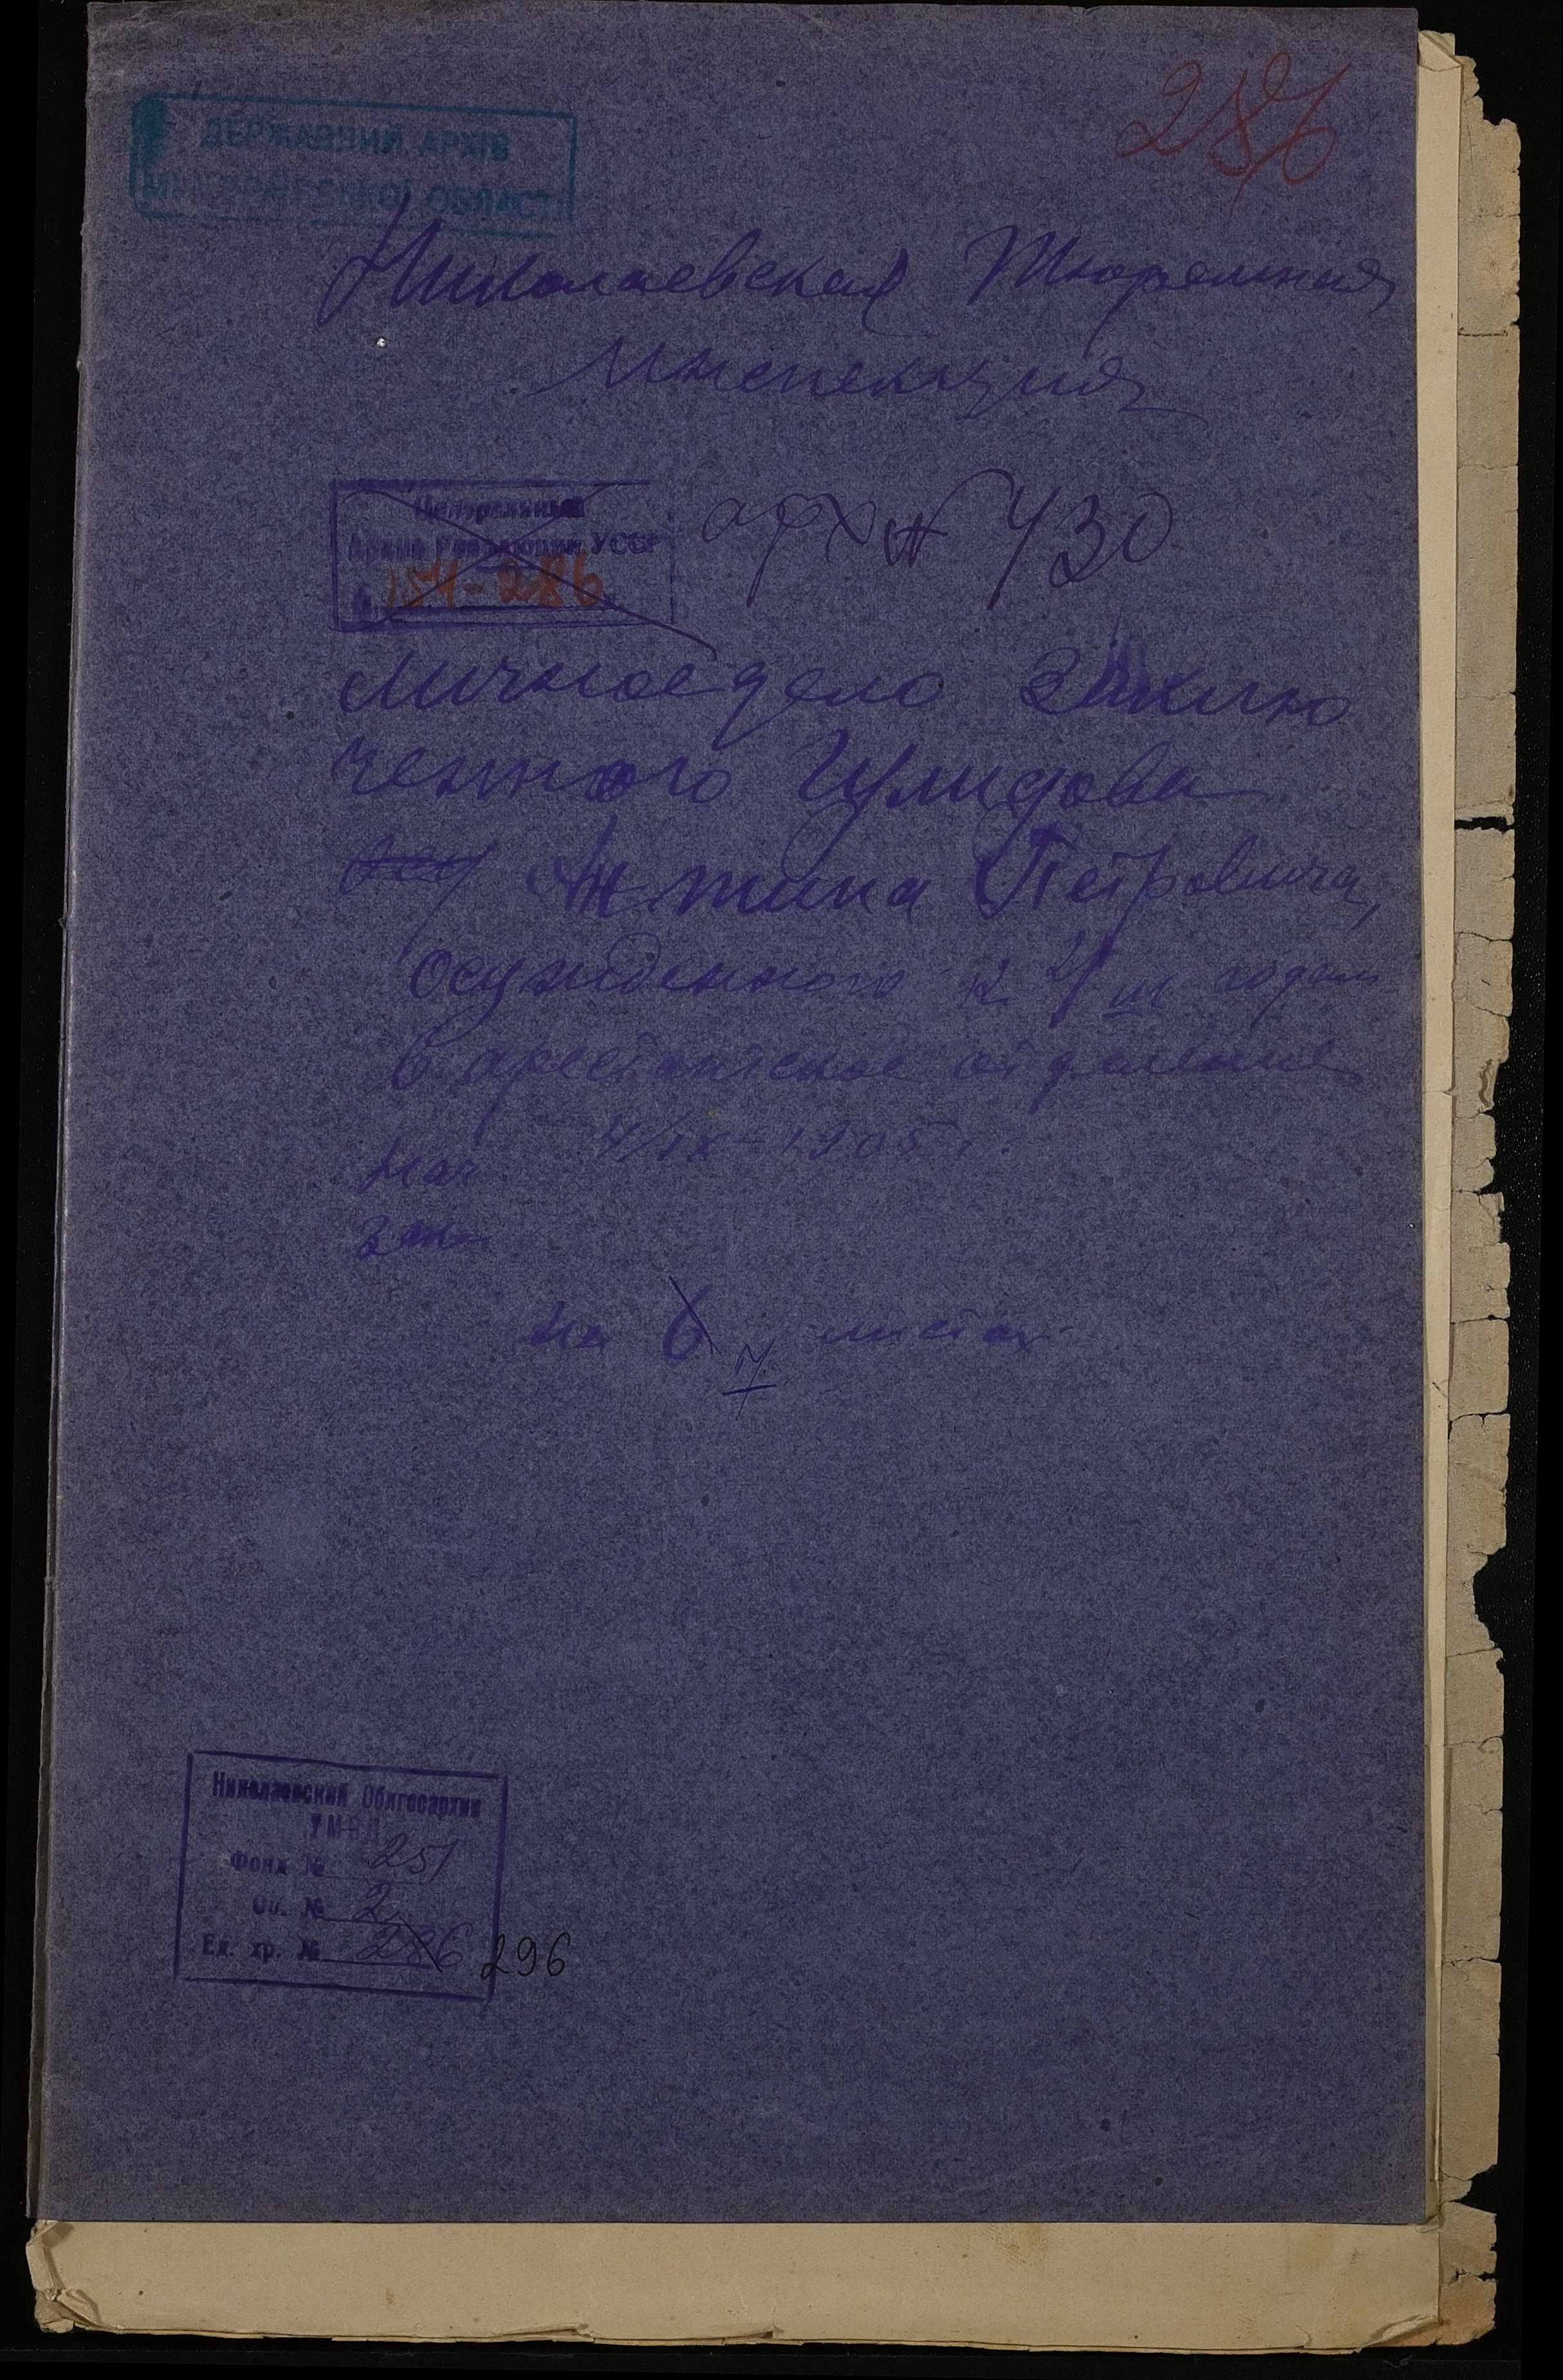 286
ДЕРЖАВНИЙ АРХІВ
МИКОЛАЇВСЬКОЇ ОБЛАСТІ
Николаевская Тюремная
Инспекция
Центральный
Архив Революции УССР
151-286
арх № 430
Личное дело заклю
ченного Гулидова
Антипа Петровича,
осужденного к годам
в арестантское отделение
Нач 4/IX-1905 г.
на 6 7 листах
Николаевский Облгосархив
УМВД
Фонд № 251
Оп. № 2
Ед. хр. № 286 296